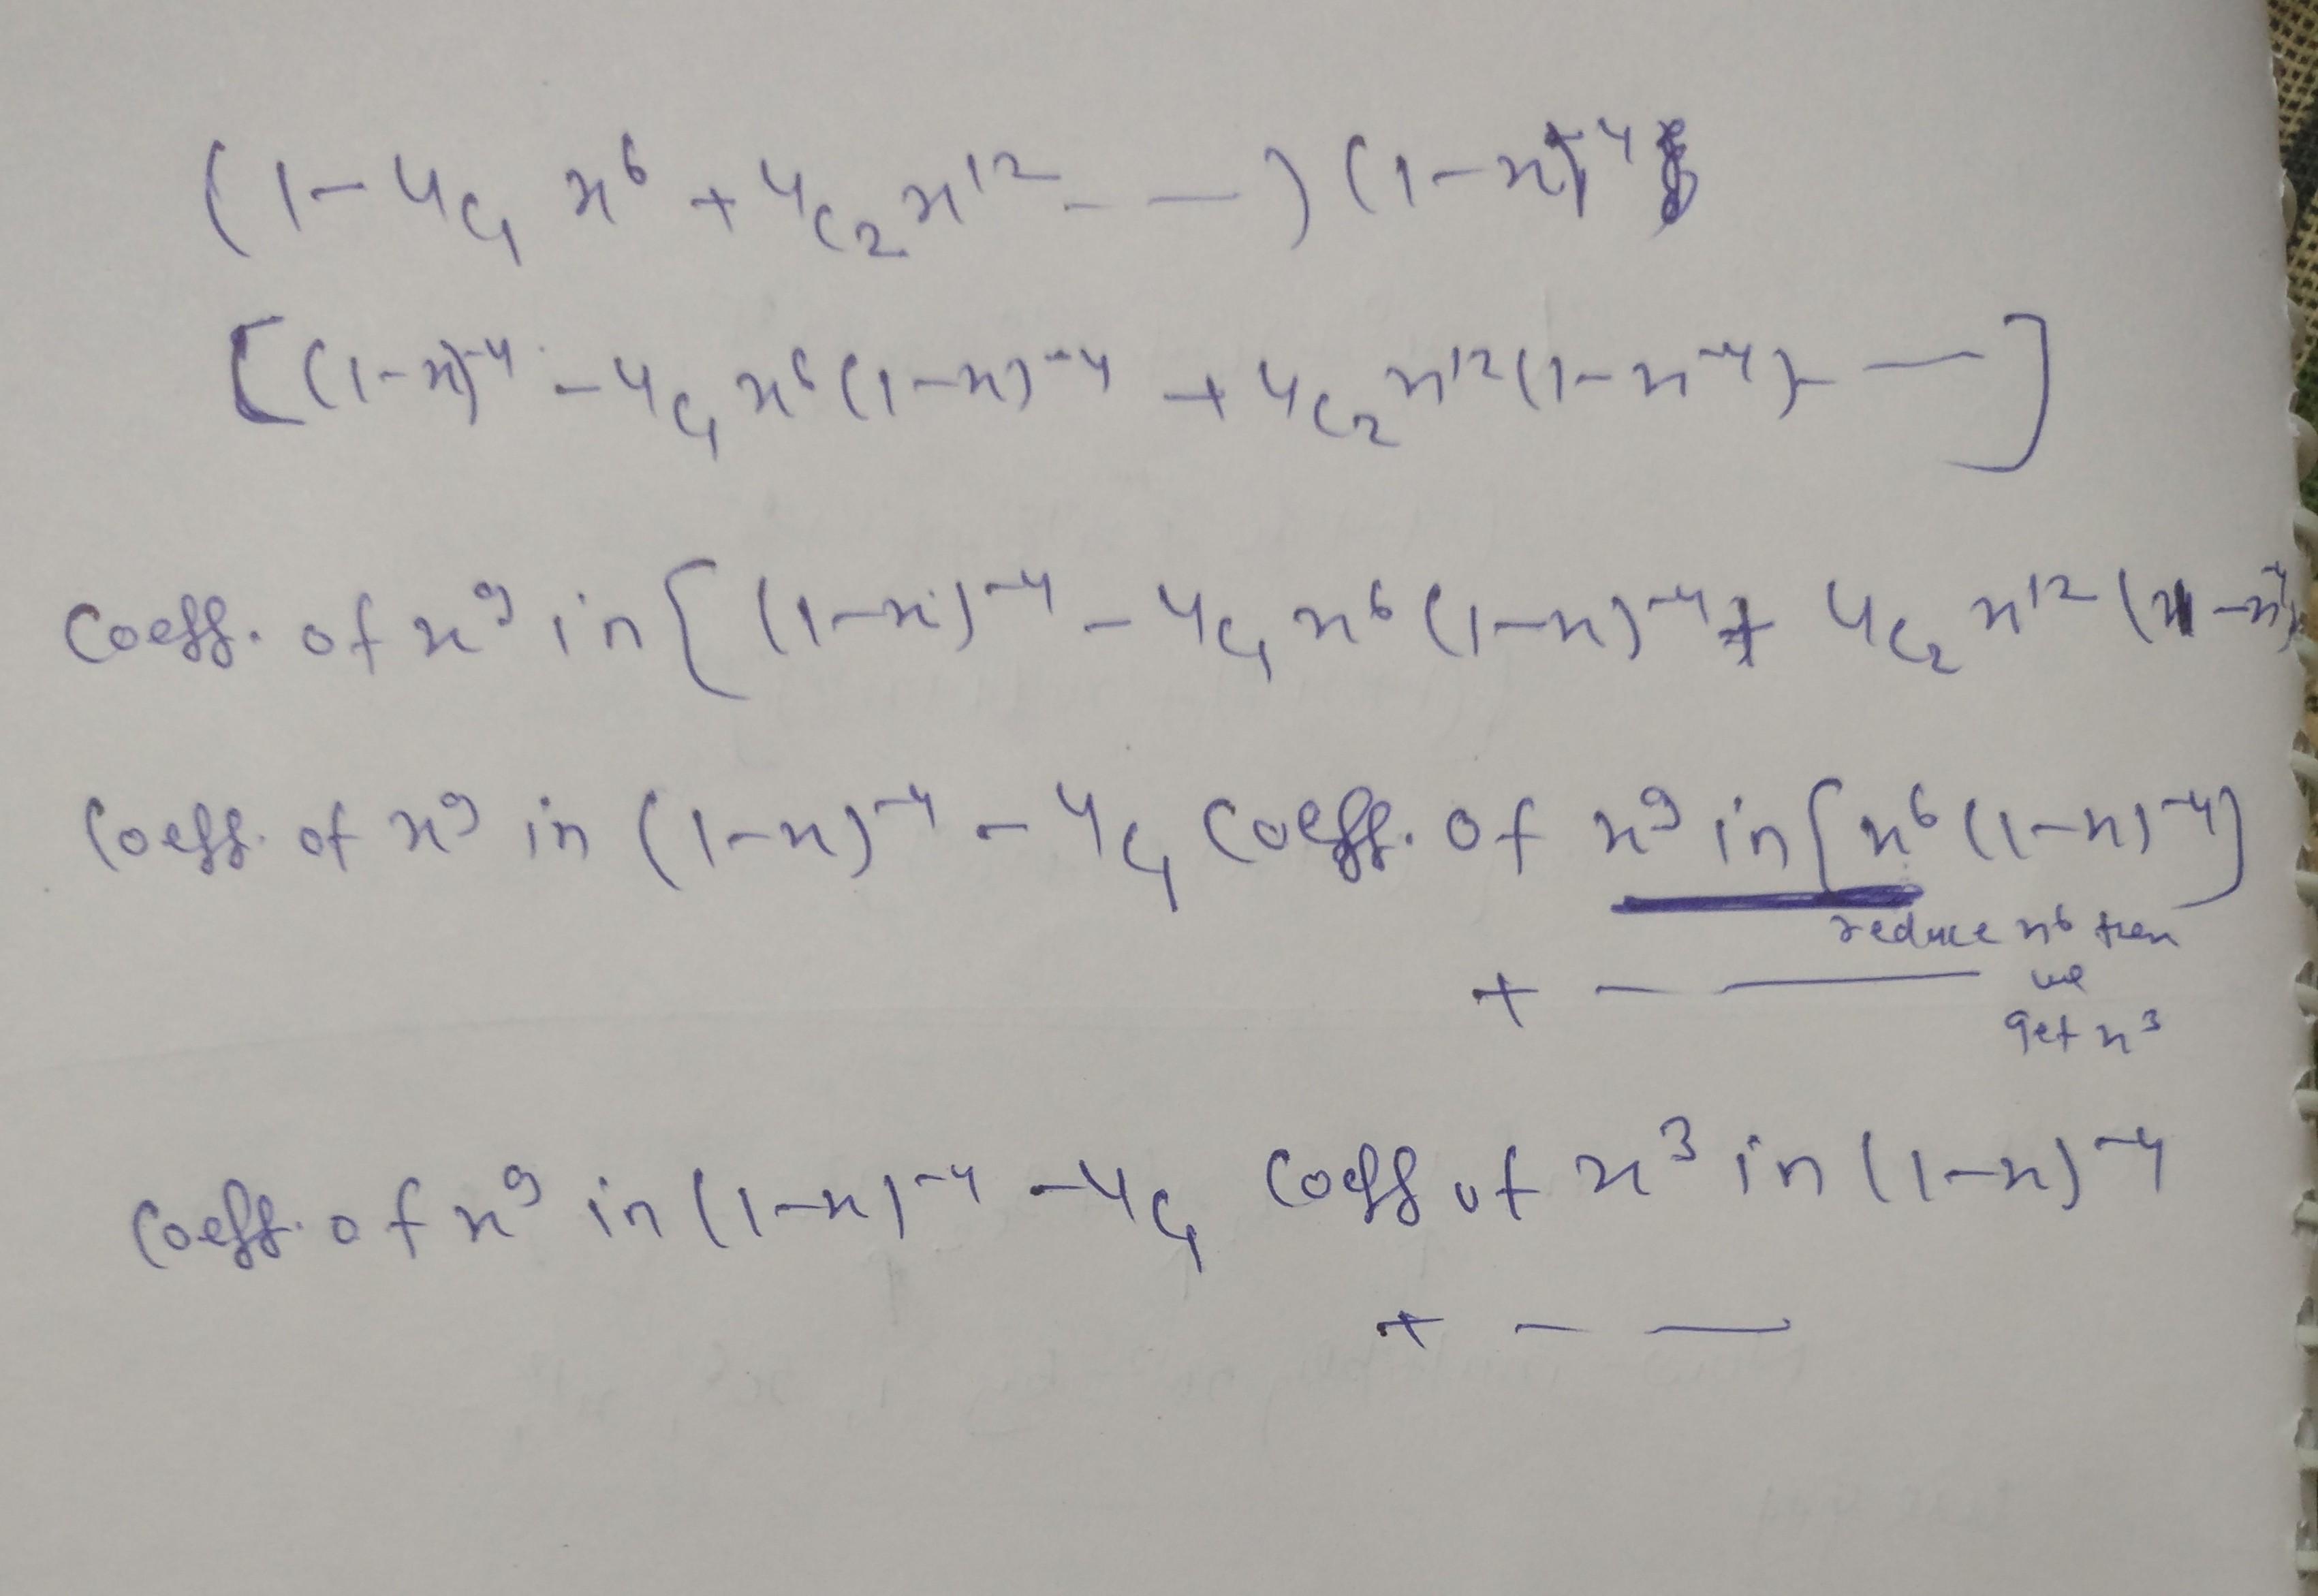 (1 - 4C₁ x⁶ + 4C₂ x¹² - —) (1-x)⁻⁴
[(1-x)⁻⁴ - 4C₁ x⁶ (1-x)⁻⁴ + 4C₂ x¹² (1-x⁻⁴) - —]
Coeff. of x⁹ in [(1-x)⁻⁴ - 4C₁ x⁶ (1-x)⁻⁴ + 4C₂ x¹² (1-x)⁻⁴
Coeff. of x⁹ in (1-x)⁻⁴ - 4C₁ Coeff. of x⁹ in [x⁶ (1-x)⁻⁴]
reduce x⁶ then
+ - — we
get x³
Coeff. of x⁹ in (1-x)⁻⁴ - 4C₁ Coeff of x³ in (1-x)⁻⁴
+ - —